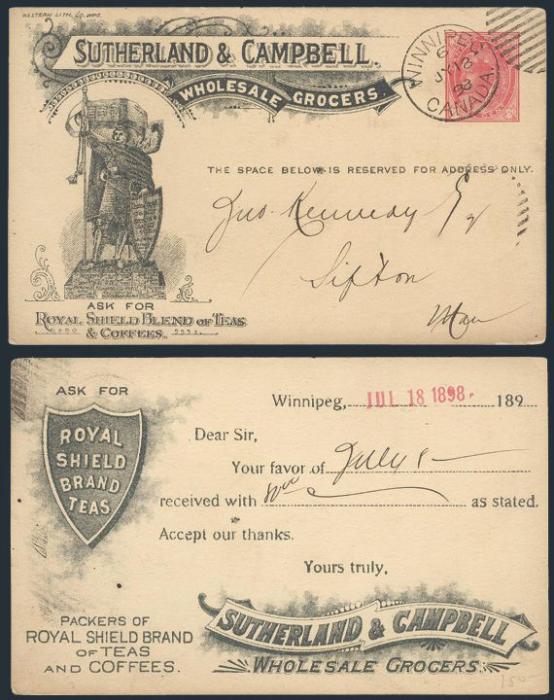 WESTERN LITH. CO. WPG.
SUTHERLAND & CAMPBELL
WHOLESALE GROCERS.
WINNIPEG
CANADA
THE SPACE BELOW IS RESERVED FOR ADDRESS ONLY.
Jno. Kennedy Esq
Sifton
Man
ASK FOR
ROYAL SHIELD BLEND OF TEAS
& COFFEES.
ASK FOR
ROYAL
SHIELD
BRAND
TEAS
Winnipeg, JUL 18 1898. 189
Dear Sir,
Your favor of July
received with as stated.
Accept our thanks.
Yours truly,
PACKERS OF
ROYAL SHIELD BRAND
OF TEAS
AND COFFEES.
SUTHERLAND & CAMPBELL
WHOLESALE GROCERS.